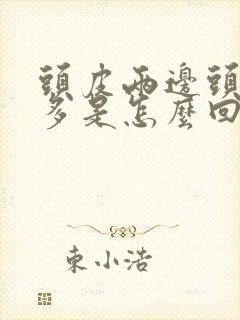 頭皮兩邊頭
多是怎麼回
東小浩